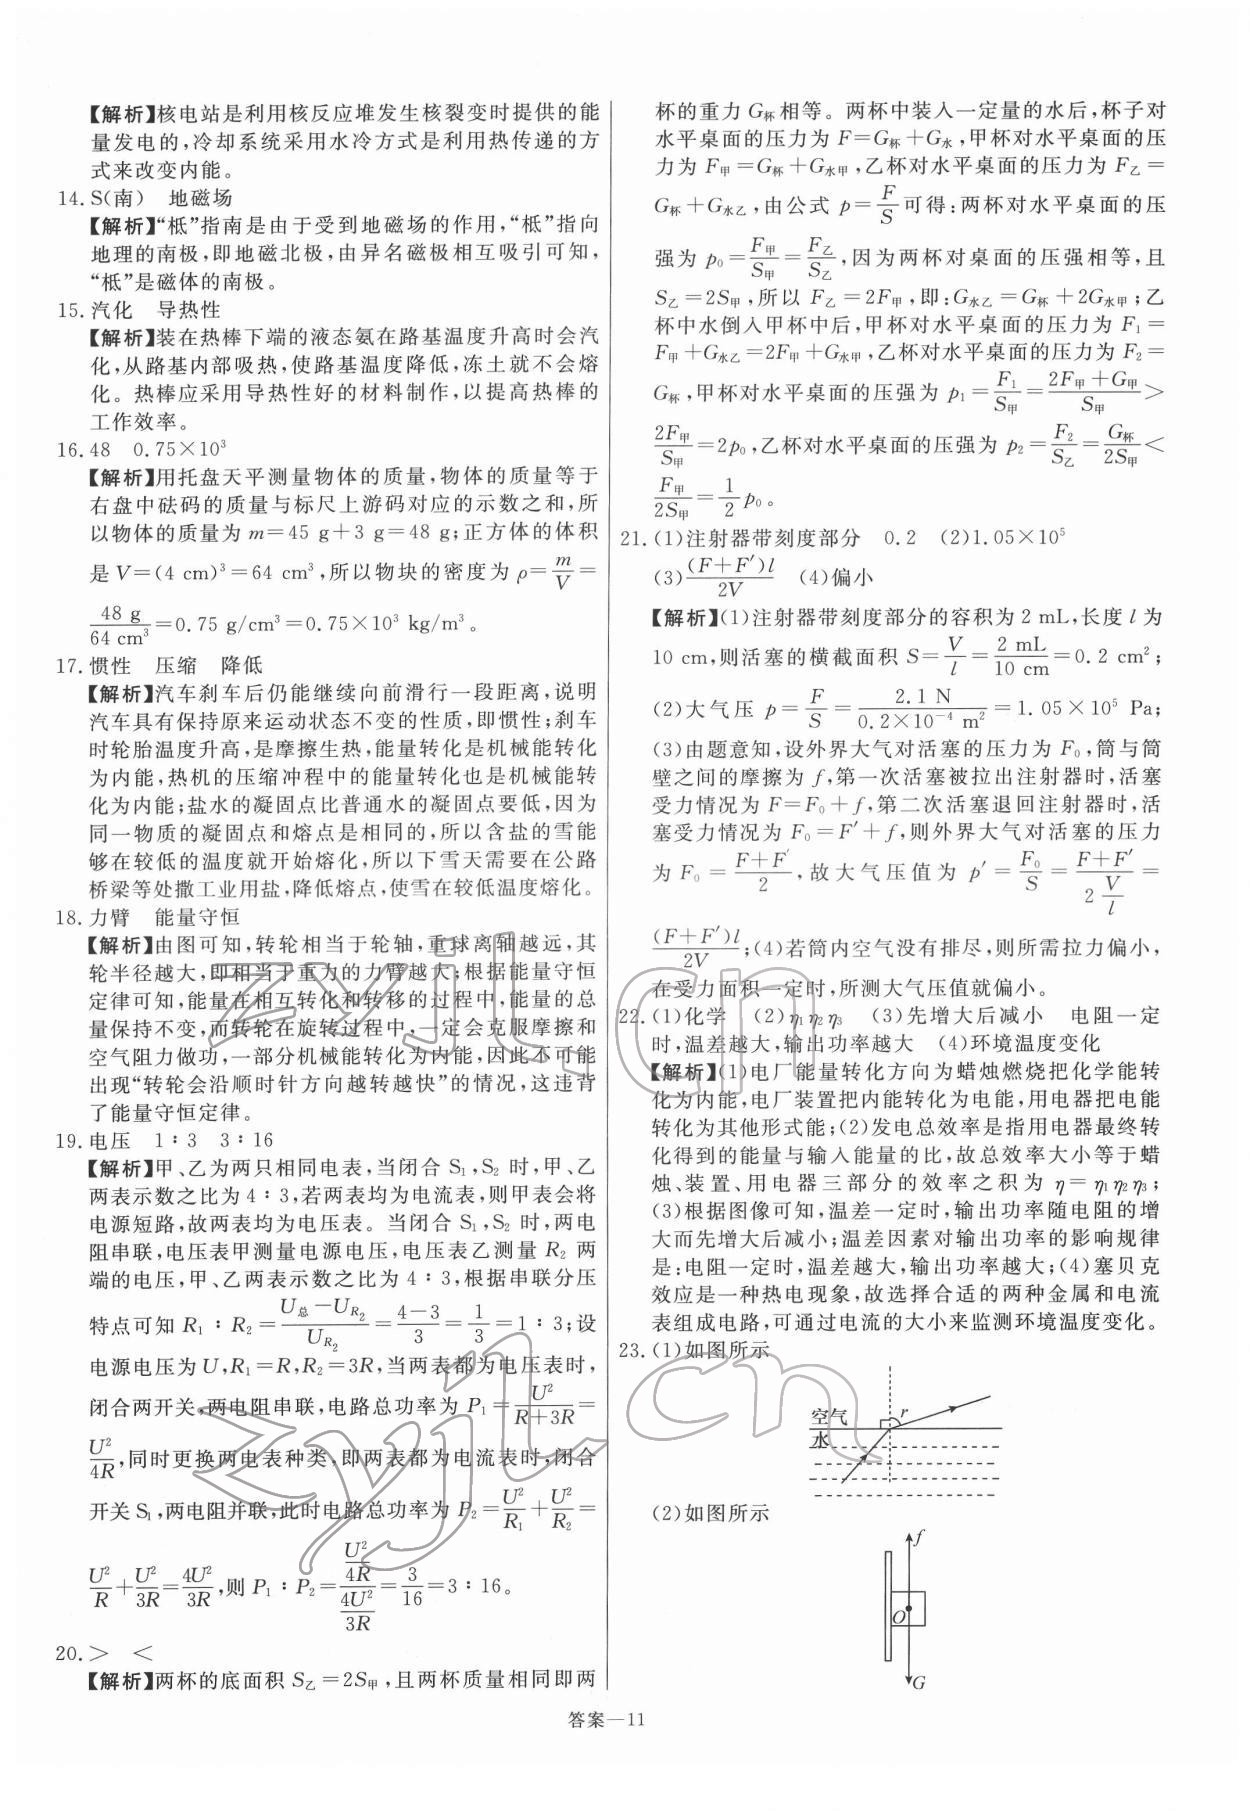 【解析】核电站是利用核反应堆发生核裂变时提供的能
量发电的,冷却系统采用水冷方式是利用热传递的方
式来改变内能。
14. S(南) 地磁场
【解析】“柢”指南是由于受到地磁场的作用,“柢”指向
地理的南极,即地磁北极,由异名磁极相互吸引可知,
“柢”是磁体的南极。
15. 汽化 导热性
【解析】装在热棒下端的液态氨在路基温度升高时会汽
化,从路基内部吸热,使路基温度降低,冻土就不会熔
化。热棒应采用导热性好的材料制作,以提高热棒的
工作效率。
16. 48 0.75×10³
【解析】用托盘天平测量物体的质量,物体的质量等于
右盘中砝码的质量与标尺上游码对应的示数之和,所
以物体的质量为 m=45 g+3 g=48 g;正方体的体积
是 V=(4 cm)³=64 cm³,所以物块的密度为 ρ=m/V=
48 g/64 cm³=0.75 g/cm³=0.75×10³ kg/m³。
17. 惯性 压缩 降低
【解析】汽车刹车后仍能继续向前滑行一段距离,说明
汽车具有保持原来运动状态不变的性质,即惯性;刹车
时轮胎温度升高,是摩擦生热,能量转化是机械能转化
为内能,热机的压缩冲程中的能量转化也是机械能转
化为内能;盐水的凝固点比普通水的凝固点要低,因为
同一物质的凝固点和熔点是相同的,所以含盐的雪能
够在较低的温度就开始熔化,所以下雪天需要在公路
桥梁等处撒工业用盐,降低熔点,使雪在较低温度熔化。
18. 力臂 能量守恒
【解析】由图可知,转轮相当于轮轴,重球离轴越远,其
轮半径越大,即相当于重力的力臂越大;根据能量守恒
定律可知,能量在相互转化和转移的过程中,能量的总
量保持不变,而转轮在旋转过程中,一定会克服摩擦和
空气阻力做功,一部分机械能转化为内能,因此不可能
出现“转轮会沿顺时针方向越转越快”的情况,这违背
了能量守恒定律。
19. 电压 1∶3 3∶16
【解析】甲、乙为两只相同电表,当闭合 S₁,S₂ 时,甲、乙
两表示数之比为 4∶3,若两表均为电流表,则甲表会将
电源短路,故两表均为电压表。当闭合 S₁,S₂ 时,两电
阻串联,电压表甲测量电源电压,电压表乙测量 R₂ 两
端的电压,甲、乙两表示数之比为 4∶3,根据串联分压
特点可知 R₁∶R₂=(U总−U_R₂)/U_R₂=(4−3)/3=1/3=1∶3;设
电源电压为 U,R₁=R,R₂=3R,当两表都为电压表时,
闭合两开关,两电阻串联,电路总功率为 P₁=U²/(R+3R)=
U²/4R,同时更换两电表种类,即两表都为电流表时,闭合
开关 S₁,两电阻并联,此时电路总功率为 P₂=U²/R₁+U²/R₂=
U²/R+U²/3R=4U²/3R,则 P₁∶P₂=(U²/4R)/(4U²/3R)=3/16=3∶16。
20. > <
【解析】两杯的底面积 S乙=2S甲,且两杯质量相同即两
杯的重力 G杯相等。两杯中装入一定量的水后,杯子对
水平桌面的压力为 F=G杯+G水,甲杯对水平桌面的压
力为 F甲=G杯+G水甲,乙杯对水平桌面的压力为 F乙=
G杯+G水乙,由公式 p=F/S可得:两杯对水平桌面的压
强为 p₀=F甲/S甲=F乙/S乙,因为两杯对桌面的压强相等,且
S乙=2S甲,所以 F乙=2F甲,即:G水乙=G杯+2G水甲;乙
杯中水倒入甲杯中后,甲杯对水平桌面的压力为 F₁=
F甲+G水乙=2F甲+G水甲,乙杯对水平桌面的压力为 F₂=
G杯,甲杯对水平桌面的压强为 p₁=F₁/S甲=(2F甲+G甲)/S甲>
2F甲/S甲=2p₀,乙杯对水平桌面的压强为 p₂=F₂/S乙=G杯/2S甲<
F甲/2S甲=1/2 p₀。
21. (1)注射器带刻度部分 0.2 (2)1.05×10⁵
(3)(F+F′)l/2V (4)偏小
【解析】(1)注射器带刻度部分的容积为 2 mL,长度 l 为
10 cm,则活塞的横截面积 S=V/l=2 mL/10 cm=0.2 cm²;
(2)大气压 p=F/S=2.1 N/(0.2×10⁻⁴ m²)=1.05×10⁵ Pa;
(3)由题意知,设外界大气对活塞的压力为 F₀,筒与筒
壁之间的摩擦为 f,第一次活塞被拉出注射器时,活塞
受力情况为 F=F₀+f,第二次活塞退回注射器时,活
塞受力情况为 F₀=F′+f,则外界大气对活塞的压力
为 F₀=(F+F′)/2,故大气压值为 p′=F₀/S=(F+F′)/(2 V/l)=
(F+F′)l/2V;(4)若筒内空气没有排尽,则所需拉力偏小,
在受力面积一定时,所测大气压值就偏小。
22. (1)化学 (2)η₁η₂η₃ (3)先增大后减小 电阻一定
时,温差越大,输出功率越大 (4)环境温度变化
【解析】(1)电厂能量转化方向为蜡烛燃烧把化学能转
化为内能,电厂装置把内能转化为电能,用电器把电能
转化为其他形式能;(2)发电总效率是指用电器最终转
化得到的能量与输入能量的比,故总效率大小等于蜡
烛、装置、用电器三部分的效率之积为 η=η₁η₂η₃;
(3)根据图像可知,温差一定时,输出功率随电阻的增
大而先增大后减小;温差因素对输出功率的影响规律
是:电阻一定时,温差越大,输出功率越大;(4)塞贝克
效应是一种热电现象,故选择合适的两种金属和电流
表组成电路,可通过电流的大小来监测环境温度变化。
23. (1)如图所示
空气 r
水
(2)如图所示
f
O
G
答案—11
zyjl.cn
zyjl.cn